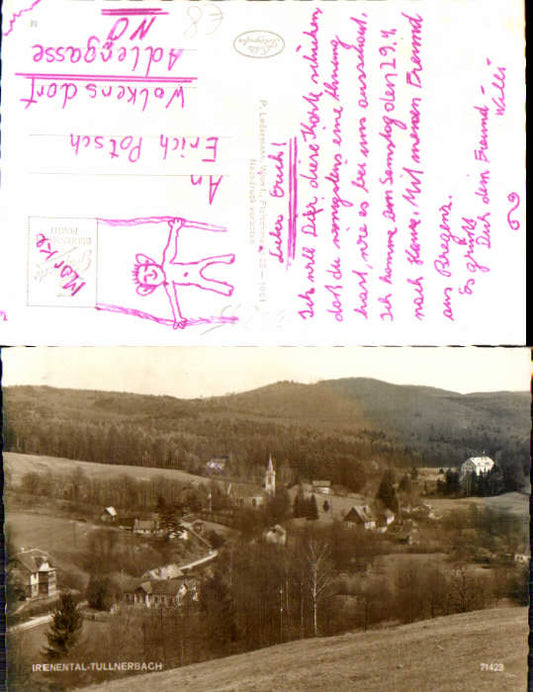 Lieber Erich!
Ich will Dir diese Karte schicken,
daß du wenigstens eine Ahnung
hast, wie es bei uns ausschaut.
Ich komme am Samstag den 29. 4
nach Hause. Mit meinen Freund
aus Bregenz.
Es grüßt
Dich dein Freund -
Willi -
An
Erich Potsch
Wolkersdorf
Adlergasse
NÖ
IRENENTAL-TULLNERBACH
71423